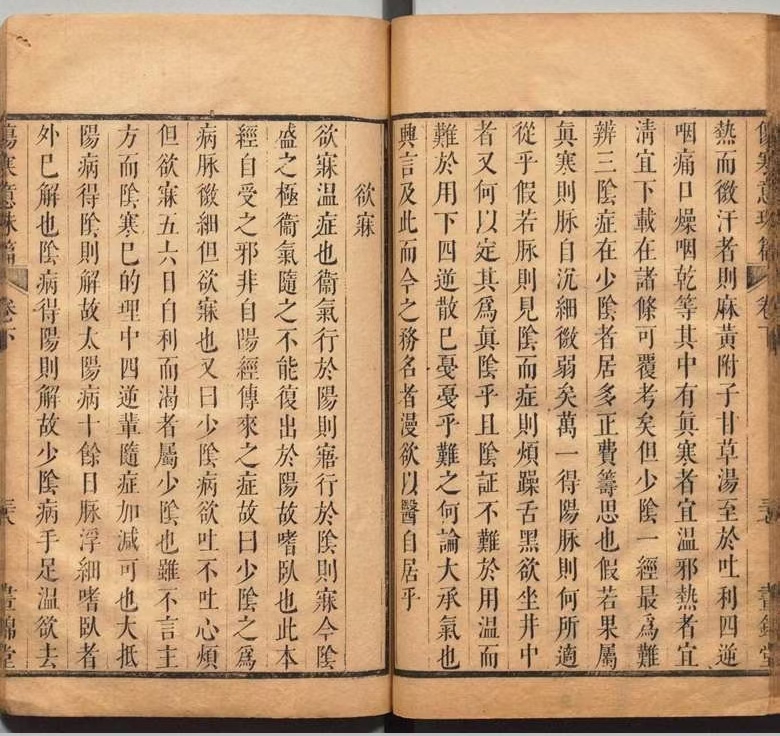 傷寒意珠篇 卷下 晝錦堂
熱而微汗者則麻黃附子甘草湯至於吐利四逆
咽痛口燥咽乾等其中有眞寒者宜温邪熱者宜
淸宜下載在諸條可覆考矣但少陰一經最爲難
辨三陰症在少陰者居多正費籌思也假若果屬
眞寒則脉自沉細微弱矣萬一得陽脉則何所適
從乎假若脉則見陰而症則煩躁舌黑欲坐井中
者又何以定其爲眞陰乎且陰証不難於用温而
難於用下四逆散已戞戞乎難之何論大承氣也
興言及此而今之務名者漫欲以醫自居乎
欲寐
欲寐温症也衞氣行於陽則寤行於陰則寐今陰
盛之極衞氣隨之不能復出於陽故嗜臥也此本
經自受之邪非自陽經傳來之症故曰少陰之爲
病脉微細但欲寐也又曰少陰病欲吐不吐心煩
但欲寐五六日自利而渴者屬少陰也雖不言主
方而陰寒已的理中四逆輩隨症加減可也大抵
陽病得陰則解故太陽病十餘日脉浮細嗜臥者
外已解也陰病得陽則解故少陰病手足温欲去
傷寒意珠篇 卷下 晝錦堂